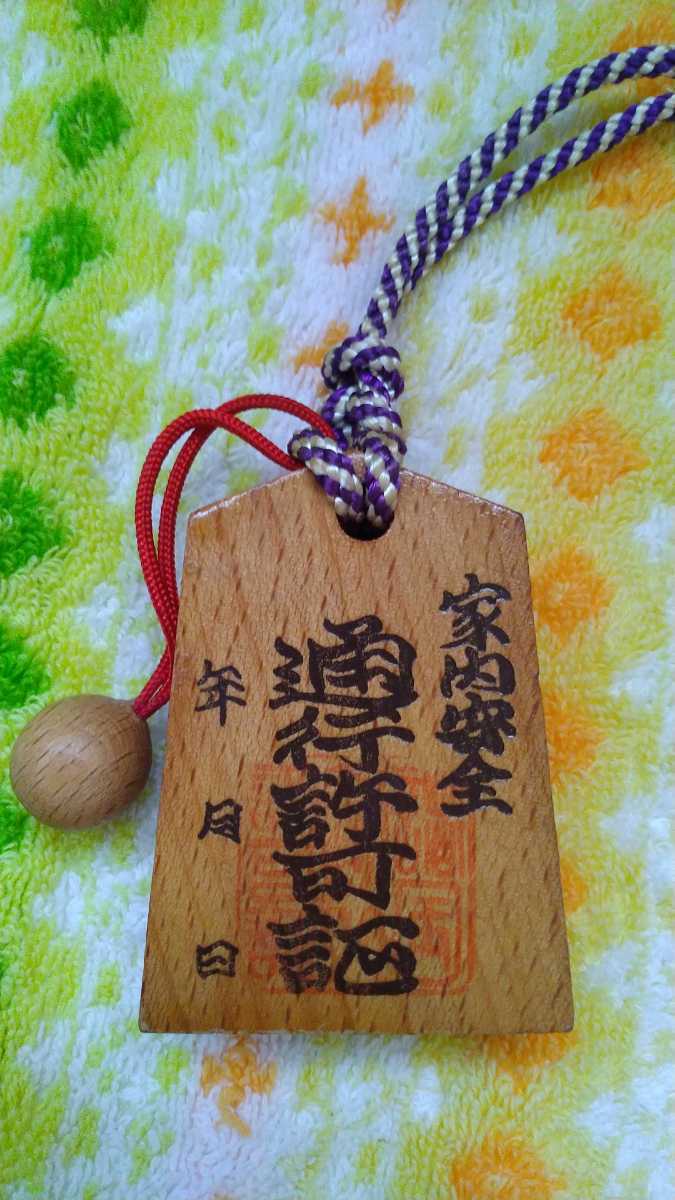 家内安全
通行許可証
年 月 日